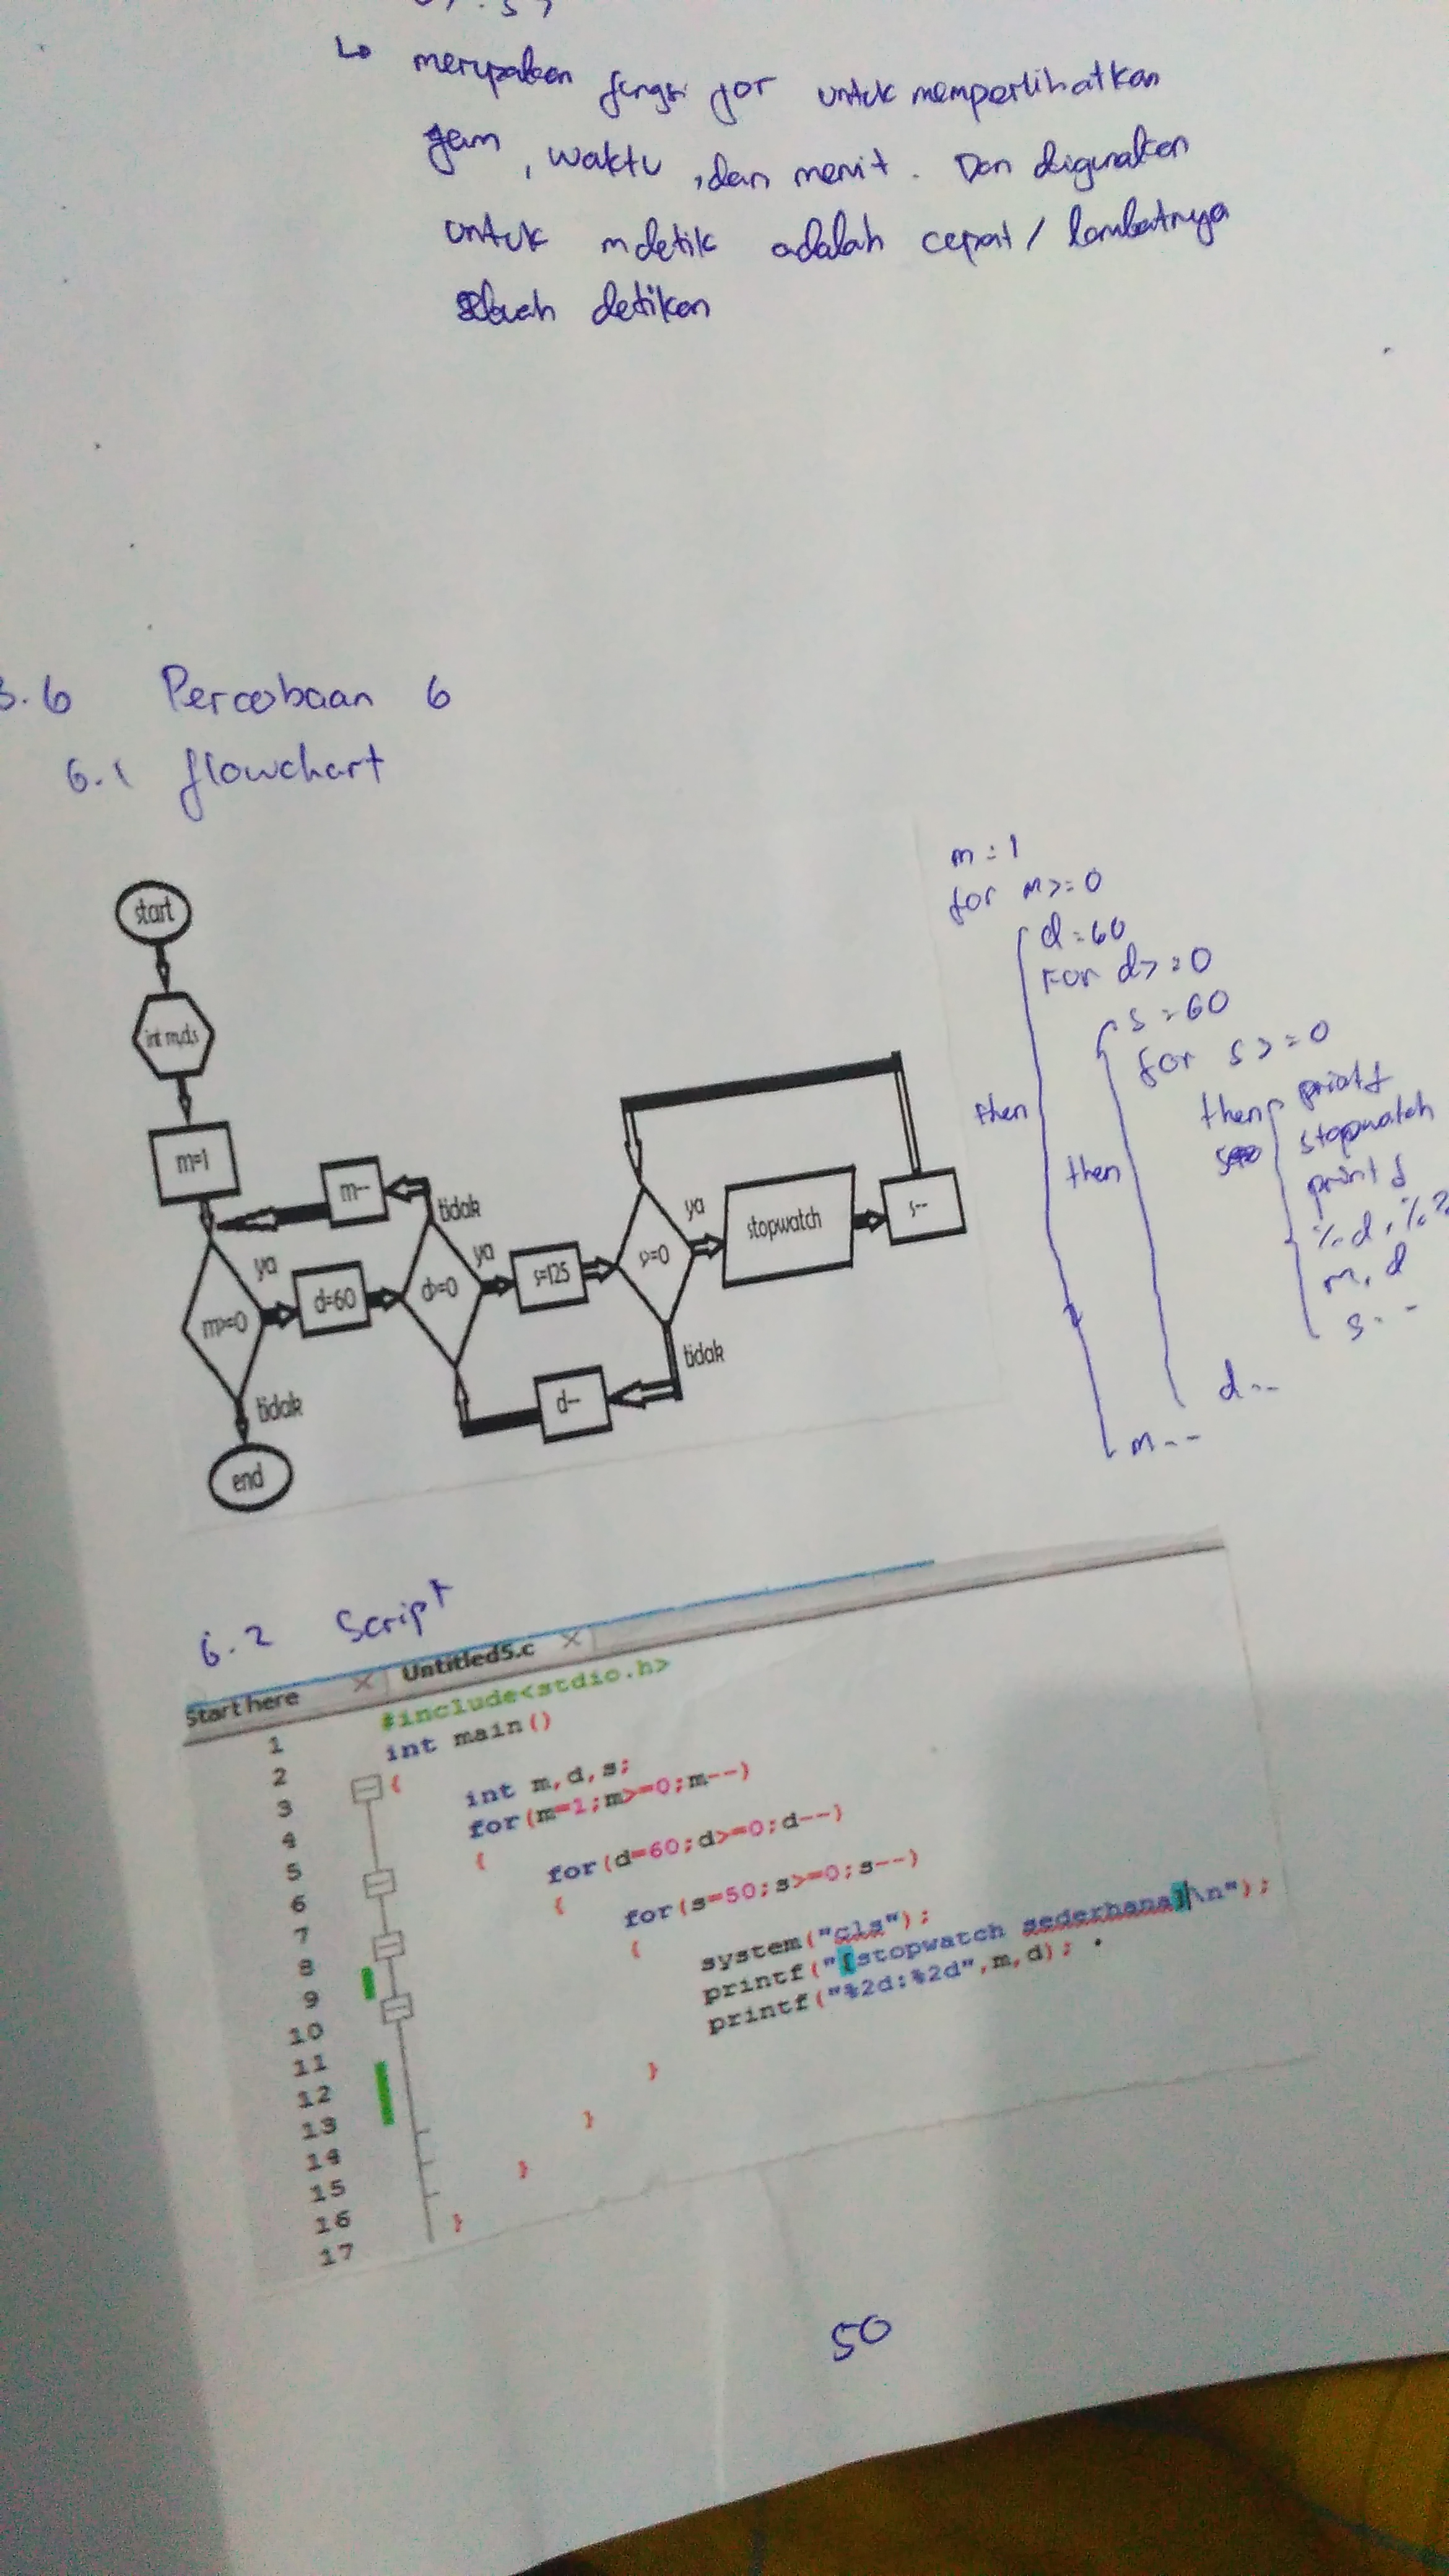 merupakan fungsi for untuk memperlihatkan
jam, waktu, dan menit. Dan digunakan
untuk mdetik adalah cepat / lambatnya
sebuah detikan
3.6 Percobaan 6
6.1 flowchart
start
int m,d,s
m=1
m>=0
ya
tidak
end
m--
d=60
d>=0
tidak
ya
s=125
s>=0
ya
tidak
d--
stopwatch
s--
m = 1
for m >= 0
then
d = 60
For d >= 0
then
s = 60
for s >= 0
then printf
stopwatch
printf
m, d
s--
d--
m--
6.2 Script
Start here
Untitled5.c
1 #include<stdio.h>
2 int main()
3 {
4 int m,d,s;
5 for(m=1;m>=0;m--)
6 {
7 for(d=60;d>=0;d--)
8 {
9 for(s=50;s>=0;s--)
10 {
11 system("cls");
12 printf("[stopwatch sederhana]\n");
13 printf("%2d:%2d",m,d);
14 }
15 }
16 }
17 }
50